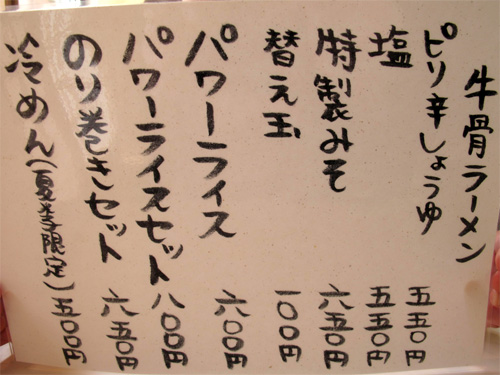 牛骨ラーメン
ピリ辛しょうゆ 五五〇円
塩 五五〇円
特製みそ 六五〇円
替え玉 一〇〇円
パワーライス 六〇〇円
パワーライスセット 八〇〇円
のり巻きセット 六五〇円
冷めん(夏季限定) 五〇〇円